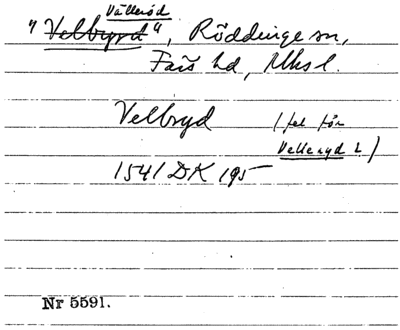 Välleröd
"Velbyrd", Röddinge sn,
Färs hd, Mhsl.
Velbryd (fel för
Velleryd?)
1541 DK 195
Nr 5591.